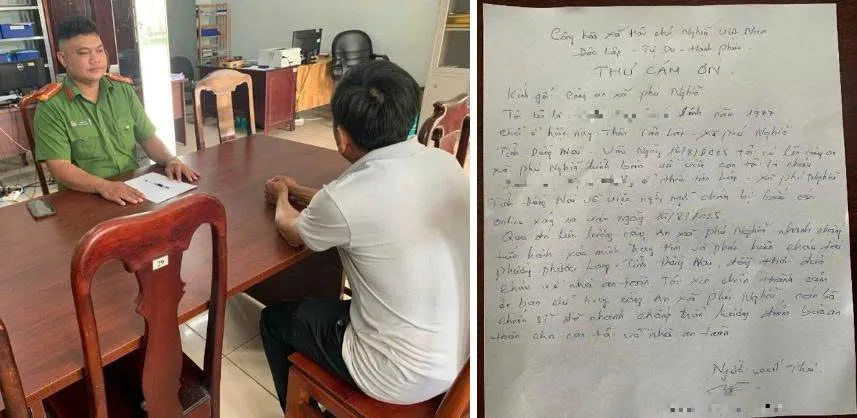 29
Cộng hòa xã hội chủ nghĩa Việt Nam
Độc lập - Tự Do - Hạnh phúc
THƯ CẢM ƠN.
Kính gởi Công an xã phú Nghĩa
Tôi tên là Sinh năm 1977
Chổ ở hiện nay Thôn Tân Lập - xã phú Nghĩa
Tỉnh Đồng Nai. Vào Ngày 16/8/2025 tôi có lên công an
xã phú Nghĩa trình báo về việc con tôi là cháu
ở thôn tân Lập - xã phú Nghĩa
Tỉnh Đồng Nai về việc nghi ngờ cháu bị bắt cóc
online xảy ra vào ngày 16/8/2025
Qua đó lực lượng công An xã phú Nghĩa nhanh chóng
tiến hành xác minh thông tin và phát hiện cháu tại
phường phước Long - Tỉnh Đồng Nai, đồng thời đưa
cháu về nhà an toàn Tôi xin chân thành cảm
ơn ban chỉ huy công An xã phú Nghĩa, cán bộ
chiến sĩ đã nhanh chóng đảm bảo an
toàn cho con tôi về nhà an toàn
Người viết Thư.